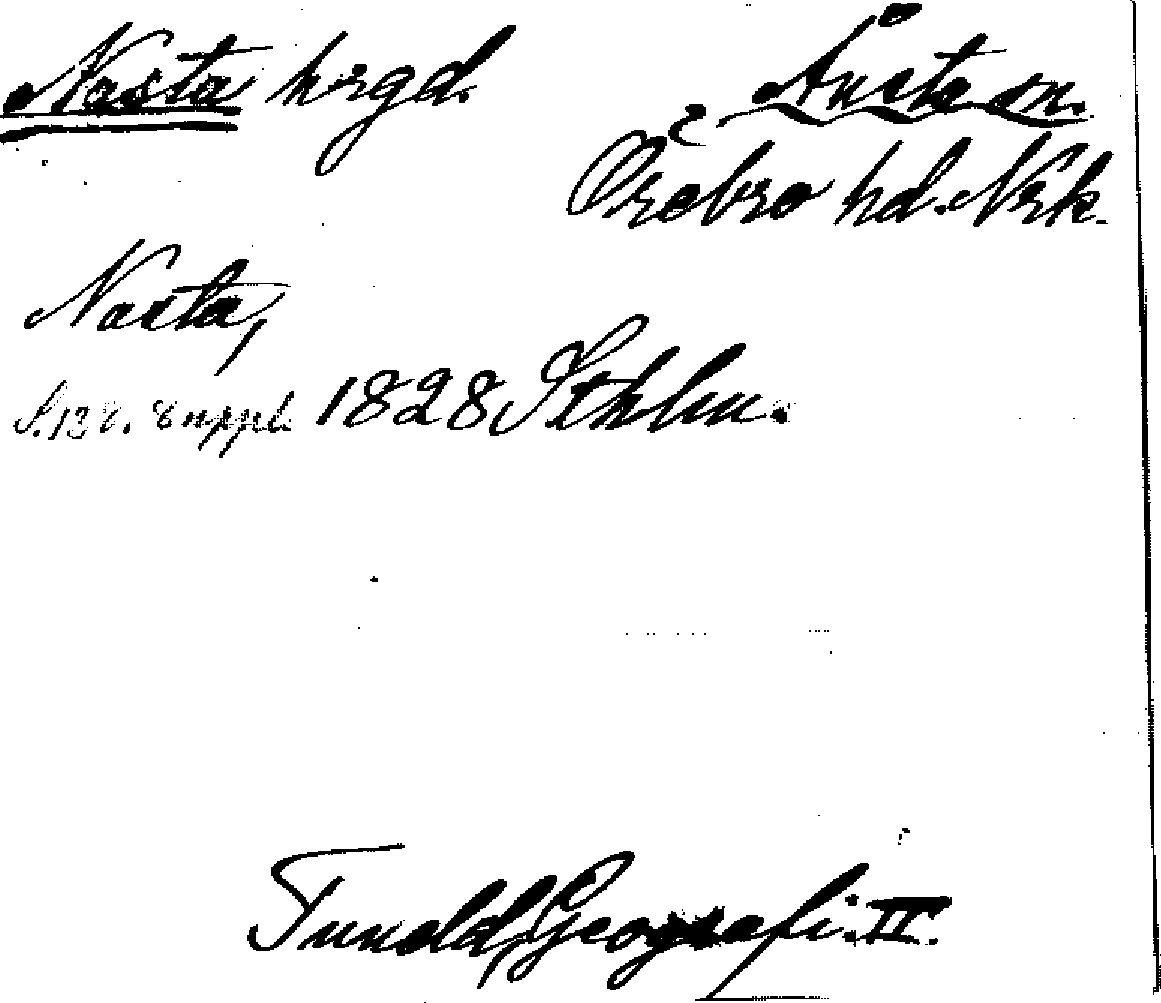 Nasta hrgd.
Ånsta sn.
Örebro hd. Nrk.
Nasta,
S. 138. 8 uppl. 1828 Sthlm.
Tunold, Geografi. II.